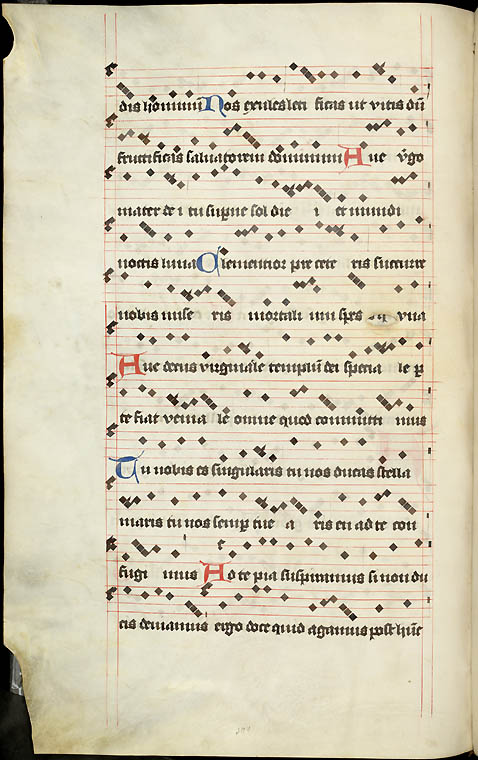 dis hominū Nos exules leti ficas ut vitis dū
fructificas saluatorem dominum Aue v̄go
mater de i tu supne sol die i et mundi
noctis luna Clementior pre cete ris succurre
nobis mise ris mortali um sp̄es et vita
Aue decus virginale templū dei specia le p
te fiat venia le omne quod committi mus
Tu nobis es singularis tu nos ducas stella
maris tu nos semp tue a ris en ad te con
fugi mus Ad te pia suspiramus si non du
cis deuiamus ergo doce quid agamus post hūc